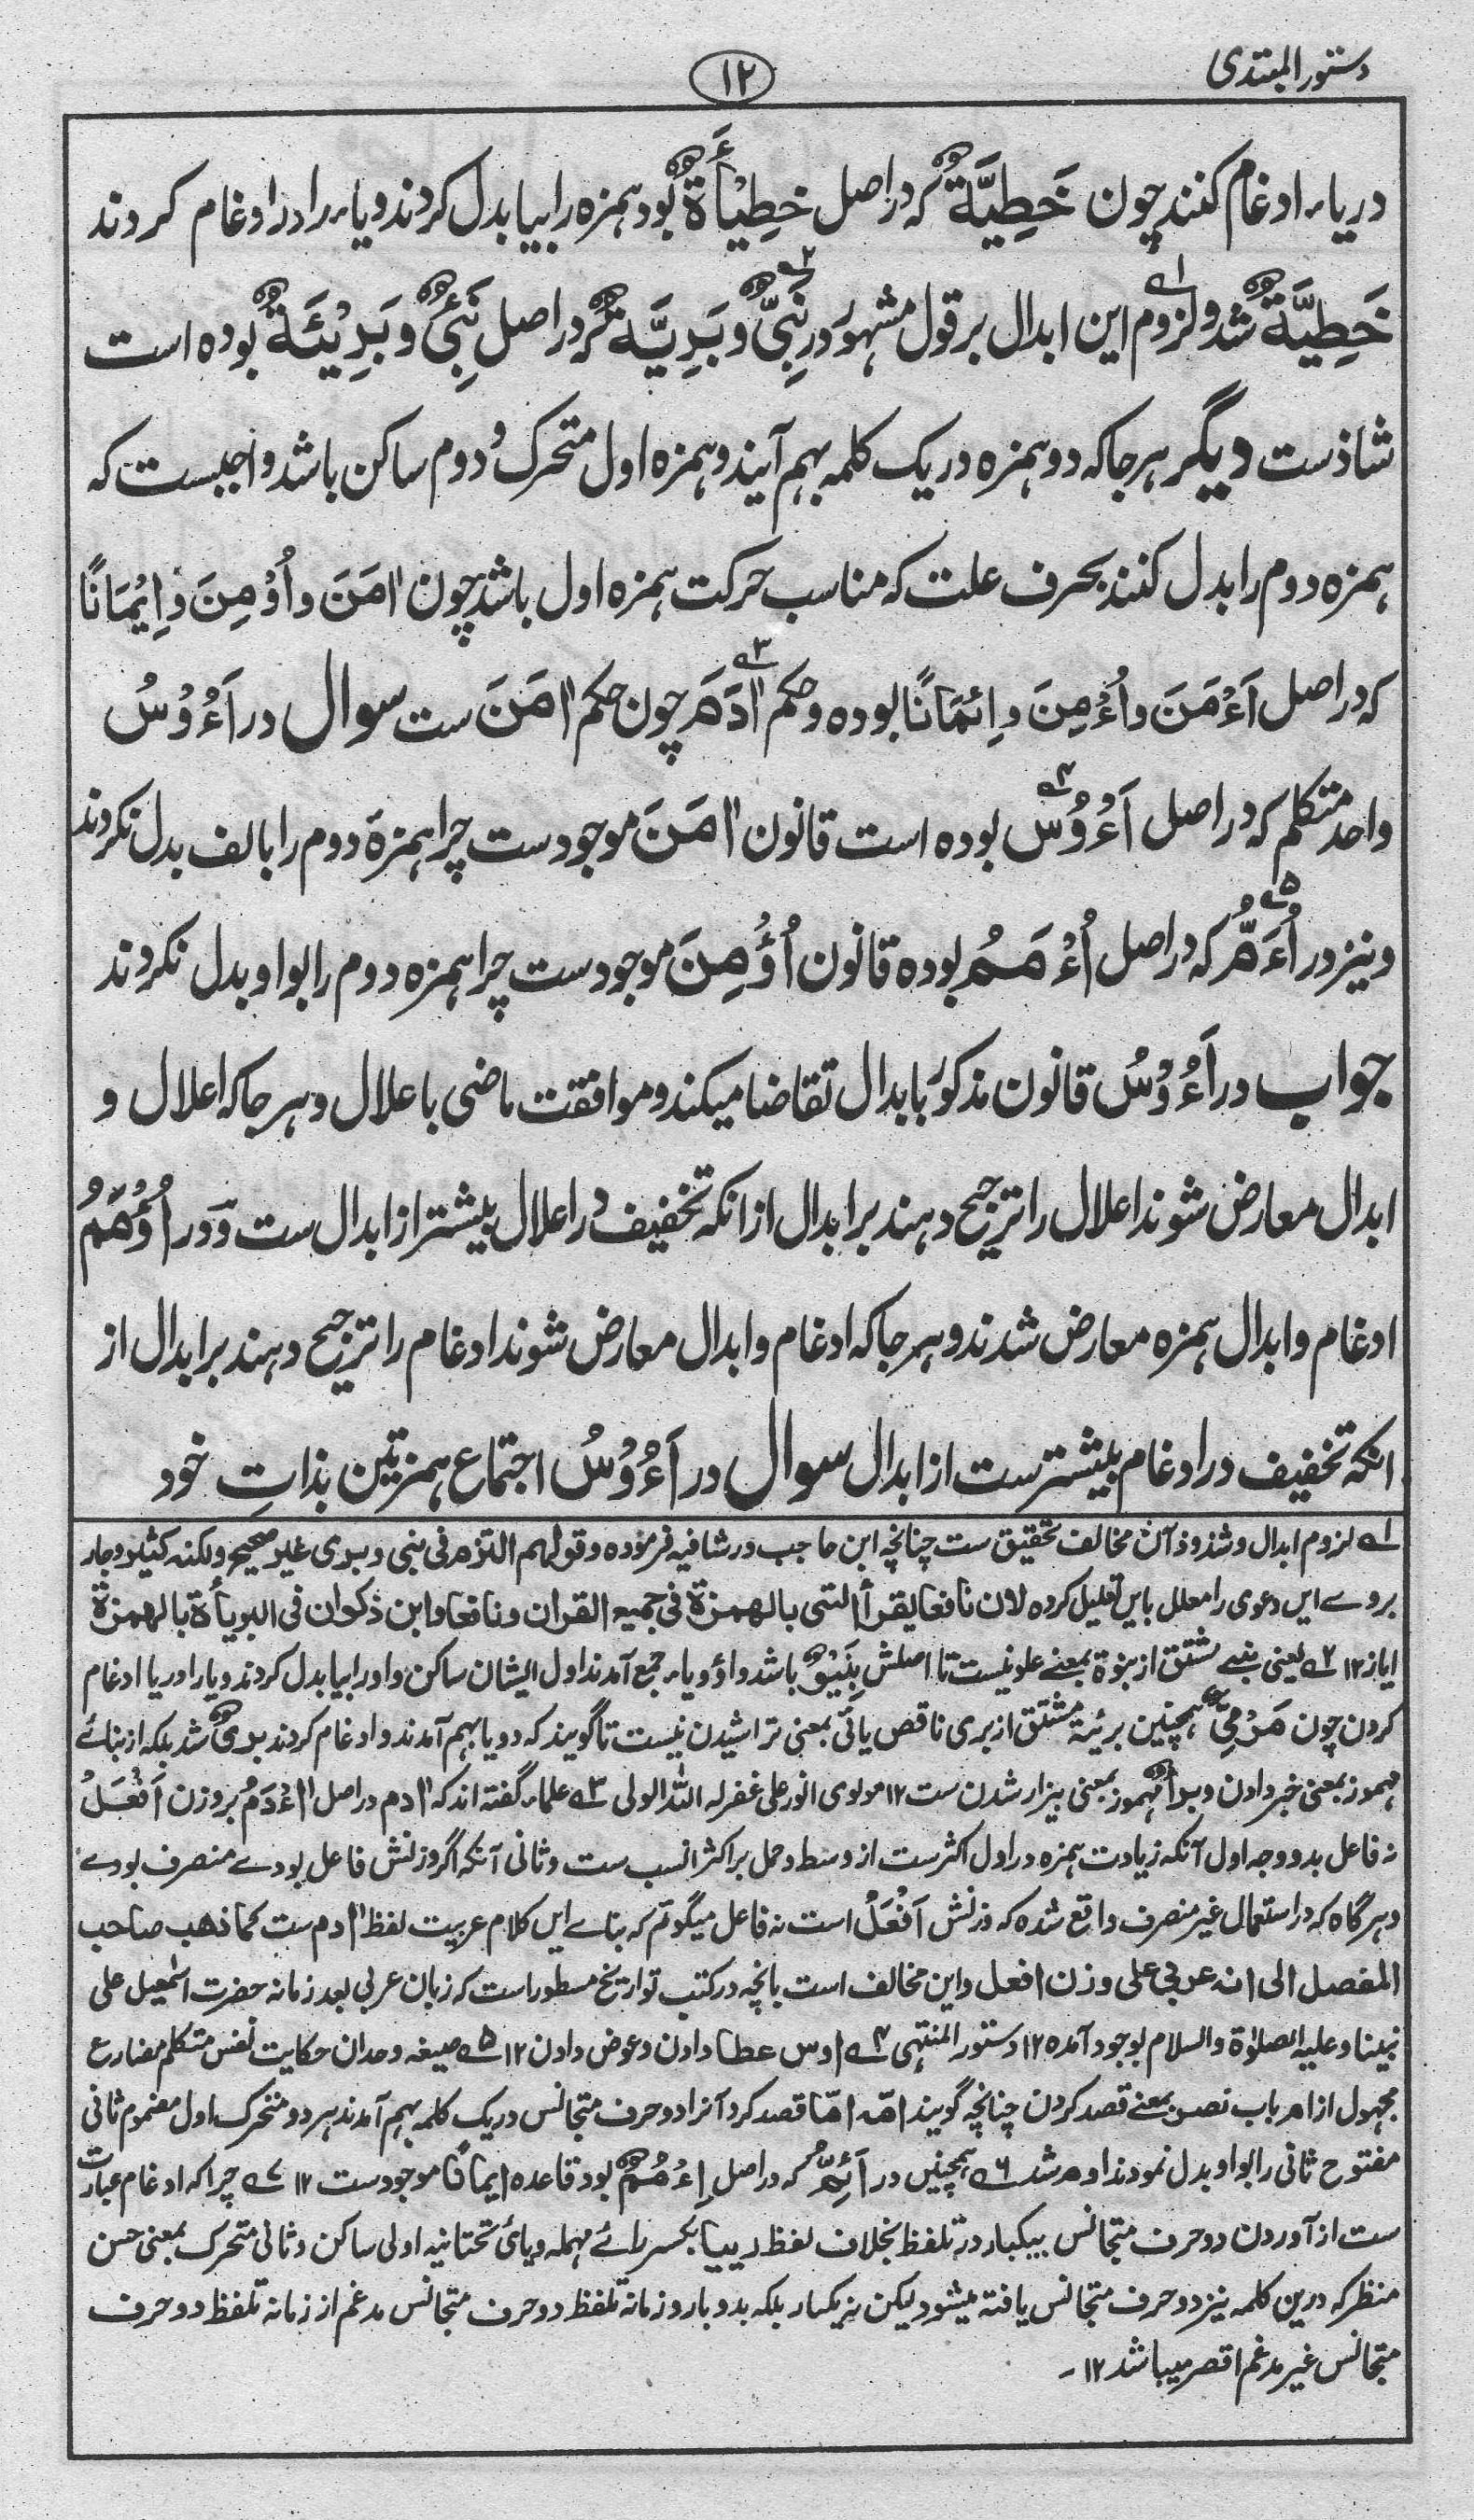 دستور المبتدی
۱۲
در یاء ادغام کنند چون خَطِیَّةٌ که در اصل خَطِیْأَةٌ بود همزه را بیا بدل کردند و یاء را در ادغام کردند
خَطِیَّةٌ شد و لزوم این ابدال بر قول مشهور در نَبِیٌّ و بَرِیَّةٌ که در اصل نَبِیْءٌ و بَرِیْئَةٌ بوده است
شاذست دیگر هر جا که دو همزه در یک کلمه بهم آیند و همزه اول متحرک و دوم ساکن باشد واجبست که
همزه دوم را بدل کنند بحرف علت که مناسب حرکت همزه اول باشد چون اٰمَنَ و اُوْمِنَ و اِیْمَانًا
که در اصل اَءْمَنَ و اُءْمِنَ و اِئْمَانًا بوده و حکم اٰدَمَ چون حکم اٰمَنَ ست سوال در اَءُوْسُ
واحد متکلم که در اصل اَءْوُسُ بوده است قانون اٰمَنَ موجودست چرا همزهٔ دوم را بالف بدل نکردند
و نیز در اُءَمُّ که در اصل اُءْمَمُ بوده قانون اُوْمِنَ موجودست چرا همزه دوم را بواو بدل نکردند
جواب در اَءُوْسُ قانون مذکور بابدال تقاضا میکند و موافقت ماضی باعلال و هر جا که اعلال و
ابدال معارض شوند اعلال را ترجیح دهند بر ابدال از انکه تخفیف در اعلال بیشتر از ابدال ست و در اُؤَمُّ
ادغام و ابدال همزه معارض شدند و هر جا که ادغام و ابدال معارض شوند ادغام را ترجیح دهند بر ابدال از
انکه تخفیف در ادغام بیشترست از ابدال سوال در اَءُوْسُ اجتماع همزتین بذاتِ خود
۱ لزوم ابدال و شذوذ آن مخالف تحقیق ست چنانچه ابن حاجب در شافیه فرموده و قولهم التزم فی نبی و بریة غیر صحیح ولکنه کثیر و جار
بروے این دعوی را معلل باین تعلیل کرده لان نافعا یقرأ النبی بالهمزة فی جمیع القران و نافعا وابن ذکوان فی البریأة بالهمزة
ایاز ۱۲ ۲ یعنی نبے مشتق از نبوة بمعنے علو نیست تا اصلش نَبِیْوٌ باشد واؤ و یاء جمع آمدند اول ایشان ساکن واو را بیا بدل کردند و یا را در یا ادغام
کردن چون مَرْمِیٌّ همچنین بریّة مشتق از بری ناقص یائی بمعنی تراشیدن نیست تا گویند که دو یا بهم آمدند و ادغام کردند بریٌّ شد بلکه از بنائے
مهموز بمعنی خبر دادن و برأ مهموز بمعنی بیزار شدن ست ۱۲ مولوی انور علی غفر له الله الولی ۳ علماء گفته اند که اٰدم در اصل اَءْدَمُ بروزن اَفْعَلُ
نه فاعل بدو وجه اول آنکه زیادت همزه در اول اکثرست از وسط و حمل بر اکثر انسب ست و ثانی آنکه اگر وزنش فاعل بودے منصرف بودے
و هر گاه که در استعمال غیر منصرف واقع شده که وزنش اَفْعَلُ است نه فاعل میگوئم که بناے این کلام عربیت لفظ اٰدم ست کما ذهب صاحب
المفصل الی انه عربی علی وزن افعل و این مخالف است بانچه در کتب تواریخ مسطور است که زبان عربی بعد زمانه حضرت اسمٰعیل علی
نبینا و علیه الصلوٰة والسلام بوجود آمده ۱۲ دستور المنتهی ۴ اوس عطا دادن و عوض دادن ۱۲ ۵ صیغه وحدان حکایت نفس متکلم مضارع
مجهول از ام باب نصر بمعنے قصد کردن چنانچه گویند امّه امّا قصد کرد آنرا دو حرف متجانس در یک کلمه بهم آمدند هر دو متحرک اول مضموم ثانی
مفتوح ثانی را بواو بدل نمودند اوم شد ۶ همچنین در اَئِمُّ که در اصل اِءْمُمُ بود قاعده ایمانًا موجودست ۱۲ ۷ چرا که ادغام عبارت
ست از آوردن دو حرف متجانس بیکبار در تلفظ بخلاف لفظ رییا بکسر رائے مهمله و یائ تحتانیه اولی ساکن و ثانی متحرک بمعنی حسن
منظر که درین کلمه نیز دو حرف متجانس یافته میشود لیکن نه بیکبار بلکه بدو بار و زمانه تلفظ دو حرف متجانس مدغم از زمانه تلفظ دو حرف
متجانس غیر مدغم اقصر میباشد ۱۲ ـ